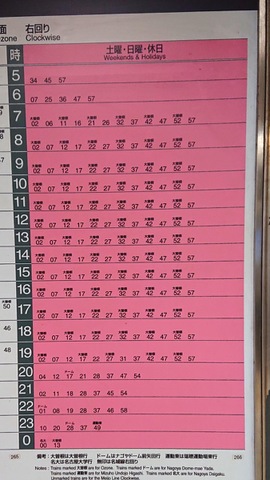 面 右回り
ozone Clockwise
時 土曜・日曜・休日
Weekends & Holidays
5 34 45 57
6 07 25 36 47 57
7 02 06 11 16 21 26 32 37 42 47 52 57
8 02 07 12 17 22 27 32 37 42 47 52 57
9 02 07 12 17 22 27 32 37 42 47 52 57
10 02 07 12 17 22 27 32 37 42 47 52 57
11 02 07 12 17 22 27 32 37 42 47 52 57
12 02 07 12 17 22 27 32 37 42 47 52 57
13 02 07 12 17 22 27 32 37 42 47 52 57
14 02 07 12 17 22 27 32 37 42 47 52 57
15 02 07 12 17 22 27 32 37 42 47 52 57
16 02 07 12 17 22 27 32 37 42 47 52 57
17 02 07 12 17 22 27 32 37 42 47 52 57
18 02 07 12 17 22 27 32 37 42 47 52 57
19 02 07 12 17 22 27 31 37 42 47 52 57
20 04 12 17 21 28 37 47 54
21 02 11 18 28 37 45 54
22 01 08 19 28 38 46 58
23 10 20 28 37 49
0 00 13
備考: 大曽根は大曽根行 ドームはナゴヤドーム前矢田行 運動東は瑞穂運動場東行
名大は名古屋大学行 無印は名城線右回り
Notes : Trains marked 大曽根 are for Ozone. Trains marked ドーム are for Nagoya Dome-mae Yada.
Trains marked 運動東 are for Mizuho Undojo Higashi. Trains marked 名大 are for Nagoya Daigaku.
Unmarked trains are for the Meijo Line Clockwise.